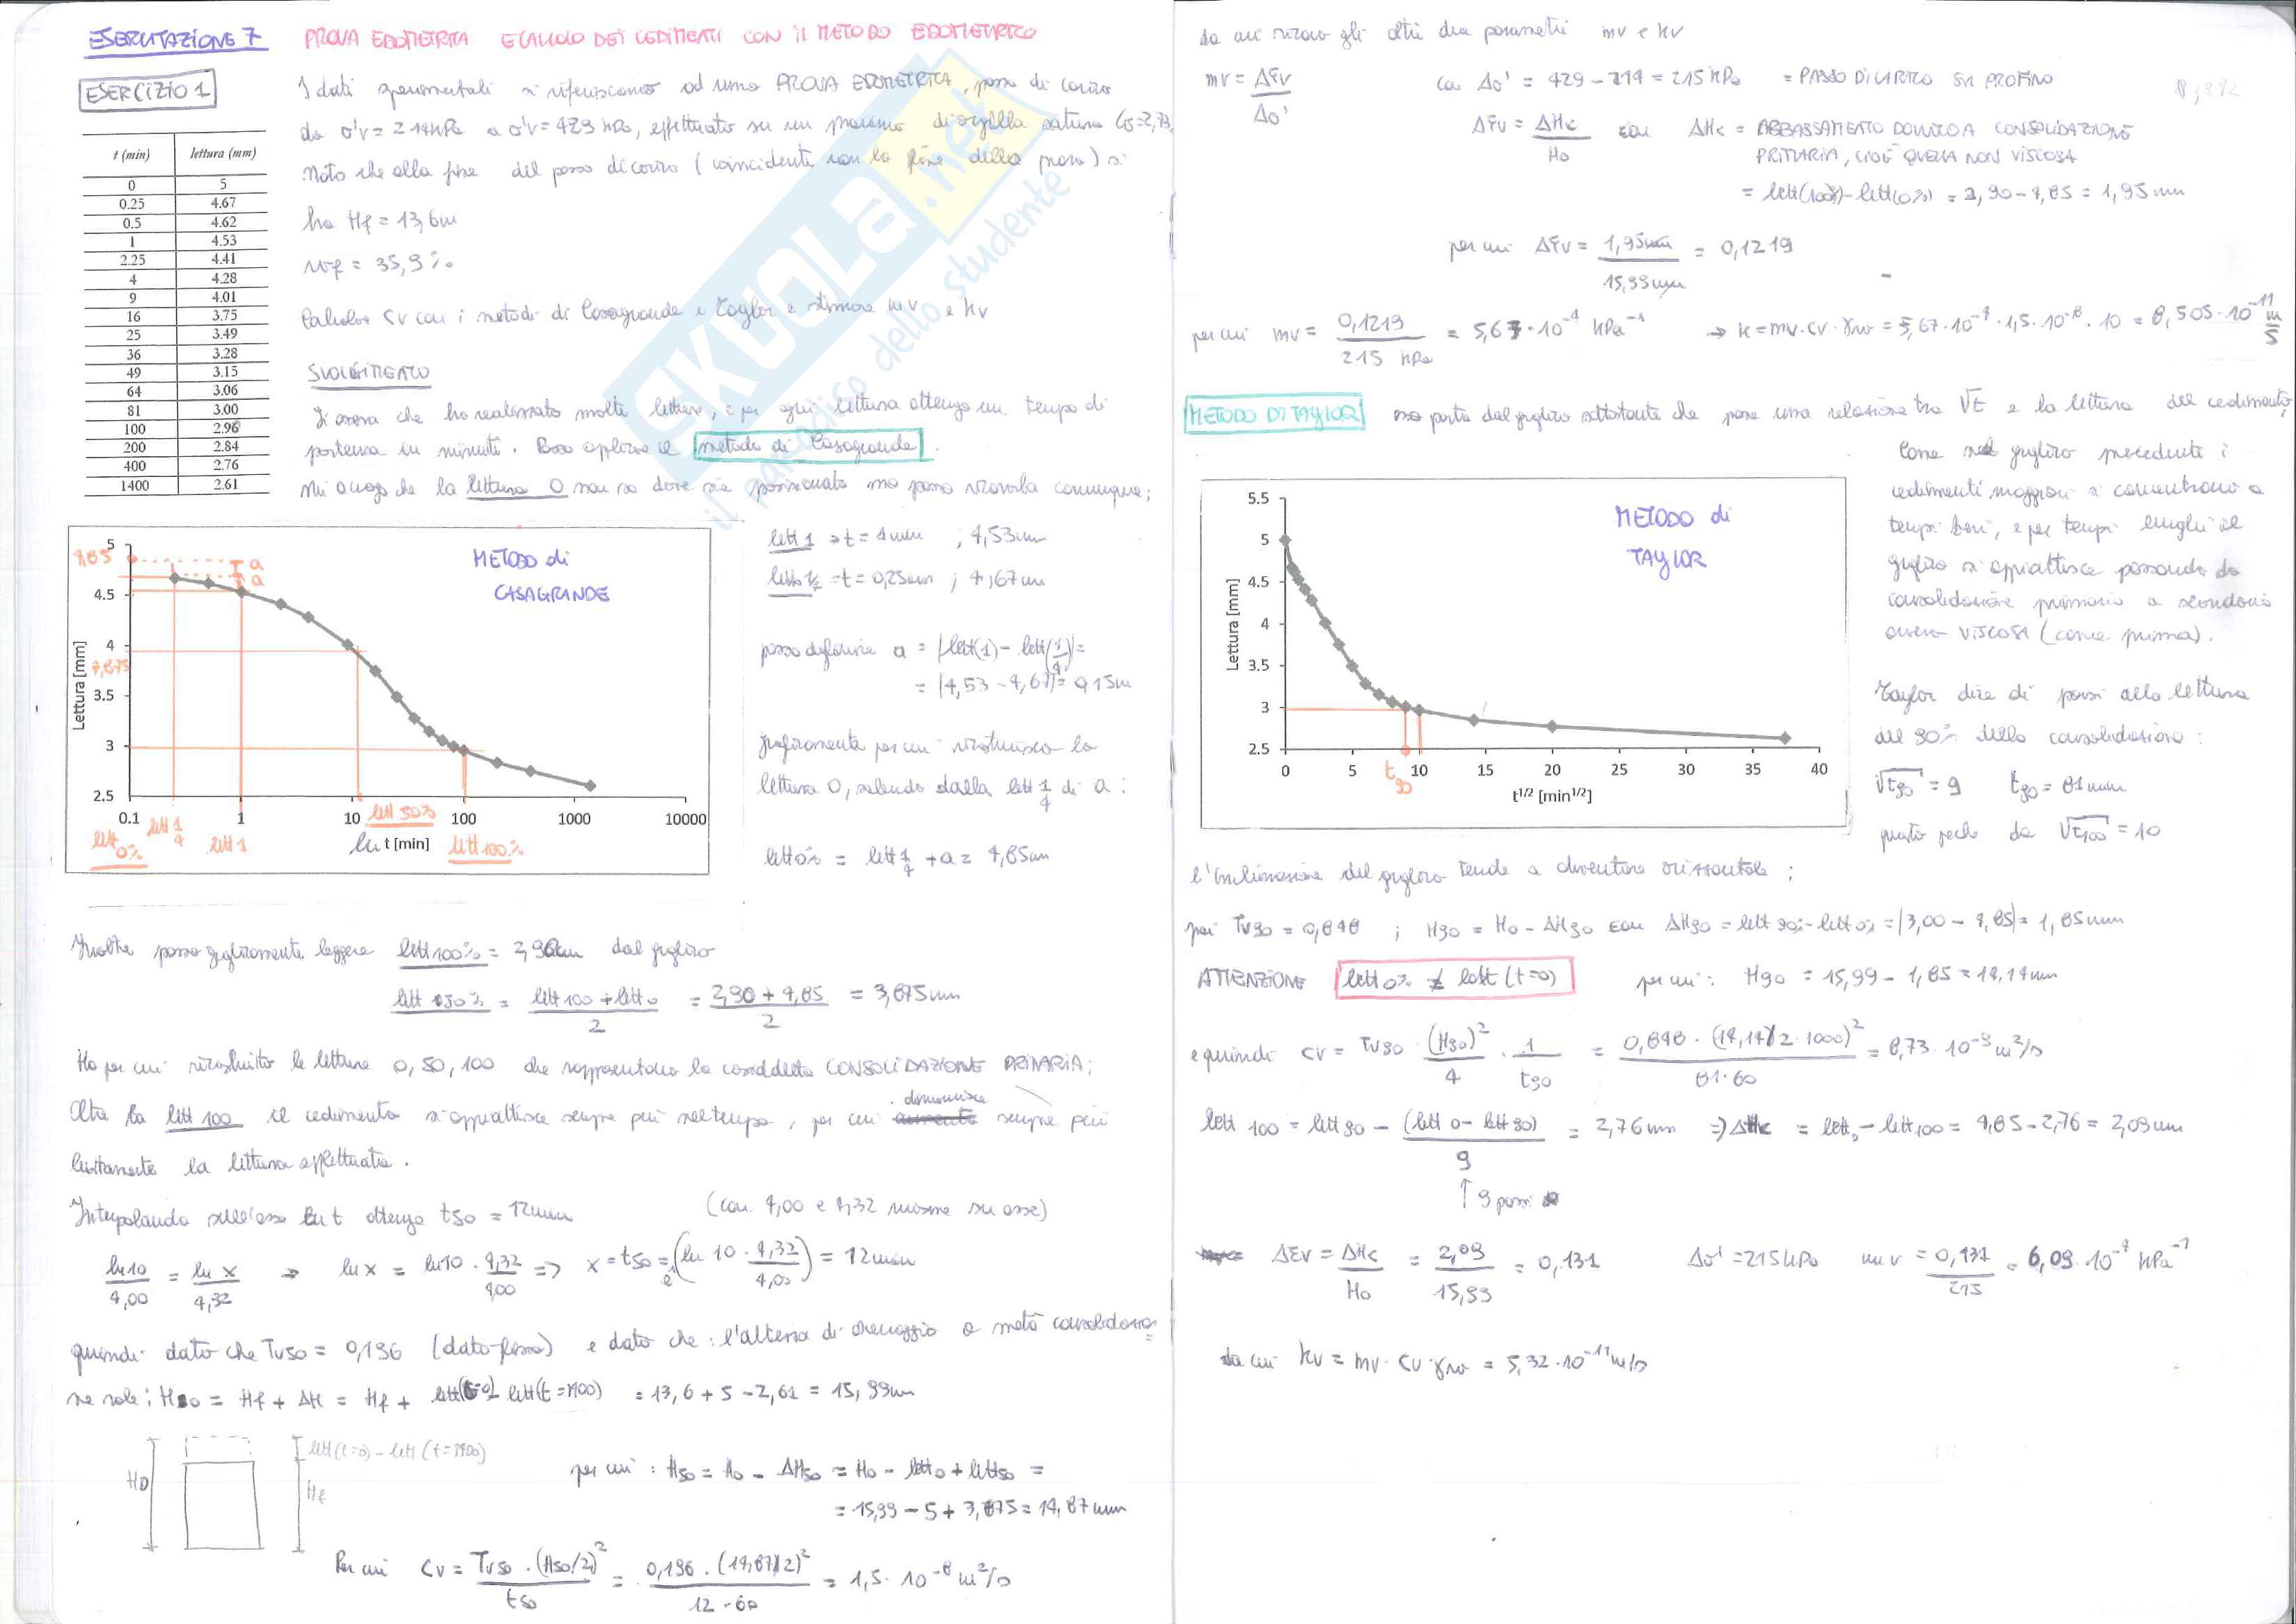 ESERCITAZIONE 7 PROVA EDOMETRICA E CALCOLO DEI CEDIMENTI CON IL METODO EDOMETRICO
ESERCIZIO 1
I dati sperimentali si riferiscono ad una PROVA EDOMETRICA, passo di carico
da σ'v = 214 kPa a σ'v = 429 kPa, effettuato su un provino di argilla satura Gs=2,73.
Noto che alla fine del passo di carico (coincidente con la fine della prova) si
ha Hf = 13,6
wf = 35,9 %
Calcolare cv con i metodi di Casagrande e Taylor e stimare mv e kv
t (min) lettura (mm)
0 5
0.25 4.67
0.5 4.62
1 4.53
2.25 4.41
4 4.28
9 4.01
16 3.75
25 3.49
36 3.28
49 3.15
64 3.06
81 3.00
100 2.96
200 2.84
400 2.76
1400 2.61
SVOLGIMENTO
Si osserva che ho realizzato molte letture, e per ogni lettura ottengo un tempo di
partenza in minuti. Posso applicare il metodo di Casagrande.
Mi accorgo che la lettura 0 non so dove sia posizionata ma posso ricavarla comunque;
METODO di
CASAGRANDE
Lettura [mm]
5
4.5
4
3.5
3
2.5
4,85
a
a
0.1 1 10 100 1000 10000
lett 0% lett 1/4 lett 1 lett 50% lett 100%
ln t [min]
lett 1 → t = 1 min ; 4,53
lett 1/4 → t = 0,25 min ; 4,67
posso definire a = |lett(1) - lett(1/4)| =
= |4,53 - 4,67| =
graficamente per cui ricostruisco la
lettura 0, salendo dalla lett 1/4 di a :
lett 0% = lett 1/4 + a = 4,85
Inoltre posso graficamente leggere lett 100% = dal grafico
lett 50% = (lett 100 + lett 0)/2 = (2,90 + 4,85)/2 = 3,875 mm
Ho per cui ricostruito le letture 0, 50, 100 che rappresentano la cosiddetta CONSOLIDAZIONE PRIMARIA;
Oltre la lett 100 il cedimento si appiattisce sempre più nel tempo, per cui diminuisce sempre più
lentamente la lettura effettuata.
Interpolando sull'asse ln t ottengo t50 = 12 min (con 4,00 e 4,32 misure su asse)
ln 10/4,00 = ln x/4,32 → ln x = ln 10 · 4,32/4,00 => x = t50 = e^(ln 10 · 4,32/4,00) = 12 min
quindi dato che Tv50 = 0,196 (dato fisso) e dato che : l'altezza di drenaggio a metà consolidazione
ne vale : H0 = Hf + ΔH = Hf + lett(t=0) - lett(t=1400) = 13,6 + 5 - 2,61 = 15,99
H0
lett(t=0) - lett(t=1400)
Hf
per cui : H50 = H0 - ΔH50 = H0 - lett0 + lett50 =
= 15,99 - 5 + 3,875 = 14,87 mm
Per cui cv = Tv50 · (H50/2)²/t50 = 0,196 · (14,87/2)²/(12 · 60) = 1,5 · 10⁻⁸ m²/s
da cui ricavo gli altri due parametri mv e kv
mv = Δεv/Δσ' con Δσ' = 429 - 214 = 215 kPa = PASSO DI CARICO SU PROVINO
Δεv = ΔHc/H0 con ΔHc = ABBASSAMENTO DOVUTO A CONSOLIDAZIONE
PRIMARIA, CIOÈ QUELLA NON VISCOSA
= lett(100%) - lett(0%) = 2,90 - 4,85 = 1,95 mm
per cui Δεv = 1,95 mm/15,99 mm = 0,1219
per cui mv = 0,1219/215 kPa = 5,67 · 10⁻⁴ kPa⁻¹ → k = mv · cv · γw = 5,67 · 10⁻⁴ · 1,5 · 10⁻⁸ · 10 = 8,505 · 10⁻¹¹ m/s
METODO DI TAYLOR esso parte dal grafico sottostante che pone una relazione tra √t e la lettura del cedimento.
METODO di
TAYLOR
Lettura [mm]
5.5
5
4.5
4
3.5
3
2.5
0 5 10 15 20 25 30 35 40
t90
t^1/2 [min^1/2]
Come nel grafico precedente i
cedimenti maggiori si concentrano a
tempi brevi, e per tempi lunghi il
grafico si appiattisce passando da
consolidazione primaria a secondaria
ovvero VISCOSA (come prima).
Taylor dice di porsi alla lettura
del 90% della consolidazione :
√t90 = 9 t90 = 81 min
questo perché da √t100 = 10
l'inclinazione del grafico tende a diventare orizzontale ;
poi Tv90 = 0,848 ; H90 = H0 - ΔH90 con ΔH90 = lett 90% - lett 0% = |3,00 - 4,85| = 1,85 mm
ATTENZIONE lett 0% ≠ lett (t=0) per cui : H90 = 15,99 - 1,85 = 14,14 mm
e quindi cv = Tv90 · (H90)²/4 · 1/t90 = 0,848 · (14,14/2·1000)²/(81·60) = 8,73 · 10⁻⁹ m²/s
lett 100 = lett 90 - (lett 0 - lett 90)/9 = 2,76 mm => ΔHc = lett0 - lett100 = 4,85 - 2,76 = 2,09 mm
↑ 9 passi
Δεv = ΔHc/H0 = 2,09/15,99 = 0,131 Δσ' = 215 kPa mv = 0,131/215 = 6,09 · 10⁻⁴ kPa⁻¹
da cui kv = mv · cv · γw = 5,32 · 10⁻¹¹ m/s
SKUOLA.net
il paradiso dello studente